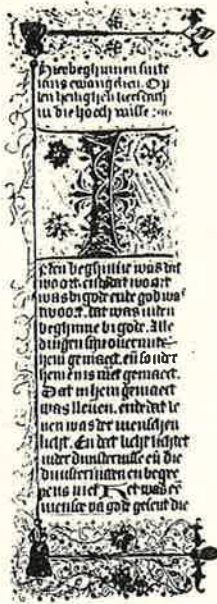 Hier beghinnen sunte
ians ewangelien. Op
ten heilighen kersdach
in die hoech misse
I
N den beghinne was dat
woort. ende dat woort
was bi gode ende god was
twoort. dat was inden
beghinne bi gode. Alle
dingen
hem gemaect. eñ sonder
hem en is niet gemaect.
Dat in hem gemaect
was lleuen. ende dat le
uen was der menschen
licht. En dat licht lichtet
inder duusternisse eñ die
duusternissen en begre
pens niet Het was eē
mensce vā god gesent die